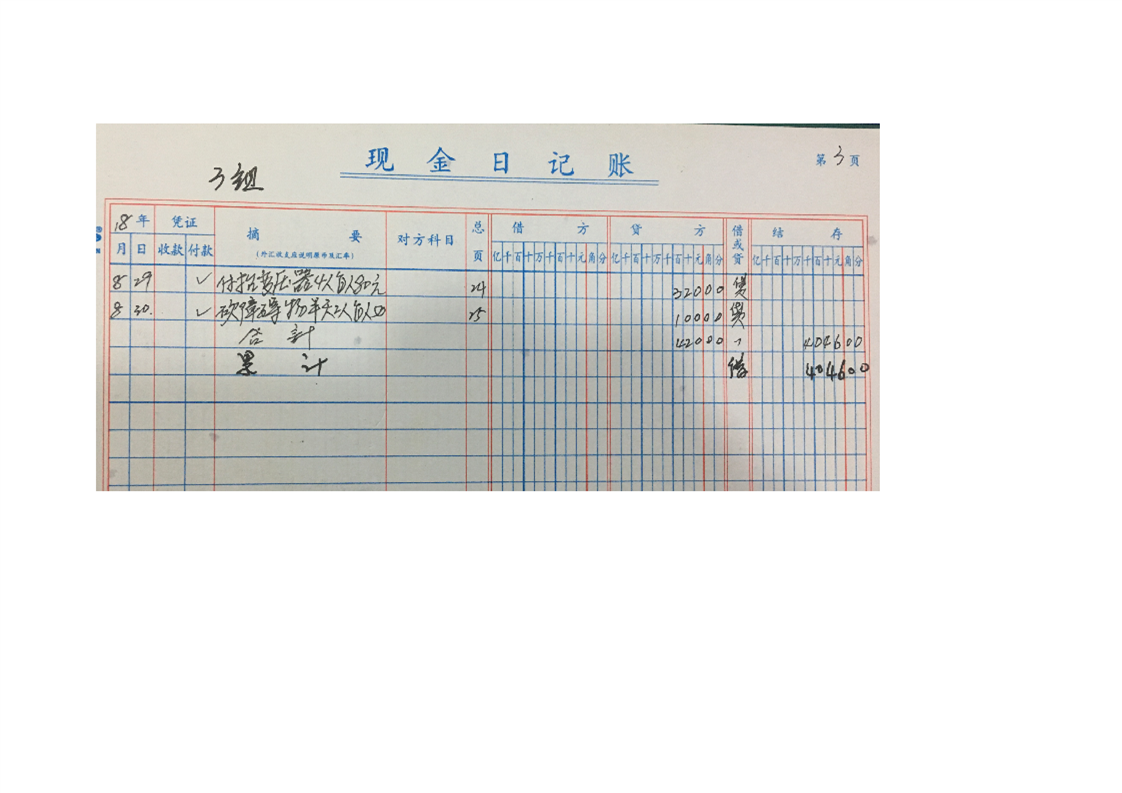 现金日记账
第3页
3组
18年 凭证 摘要 对方科目 总页 借方 贷方 借或贷 结存
月 日 收款 付款 (外汇收支应说明原币及汇率) 亿千百十万千百十元角分 亿千百十万千百十元角分 亿千百十万千百十元角分
8 29 ✓ 付抬变压器4人每人80元 24 32000 贷
8 30. ✓ 砍障碍物半天2人每人50 25 10000 贷
合计 42000 404600
累计 借 404600